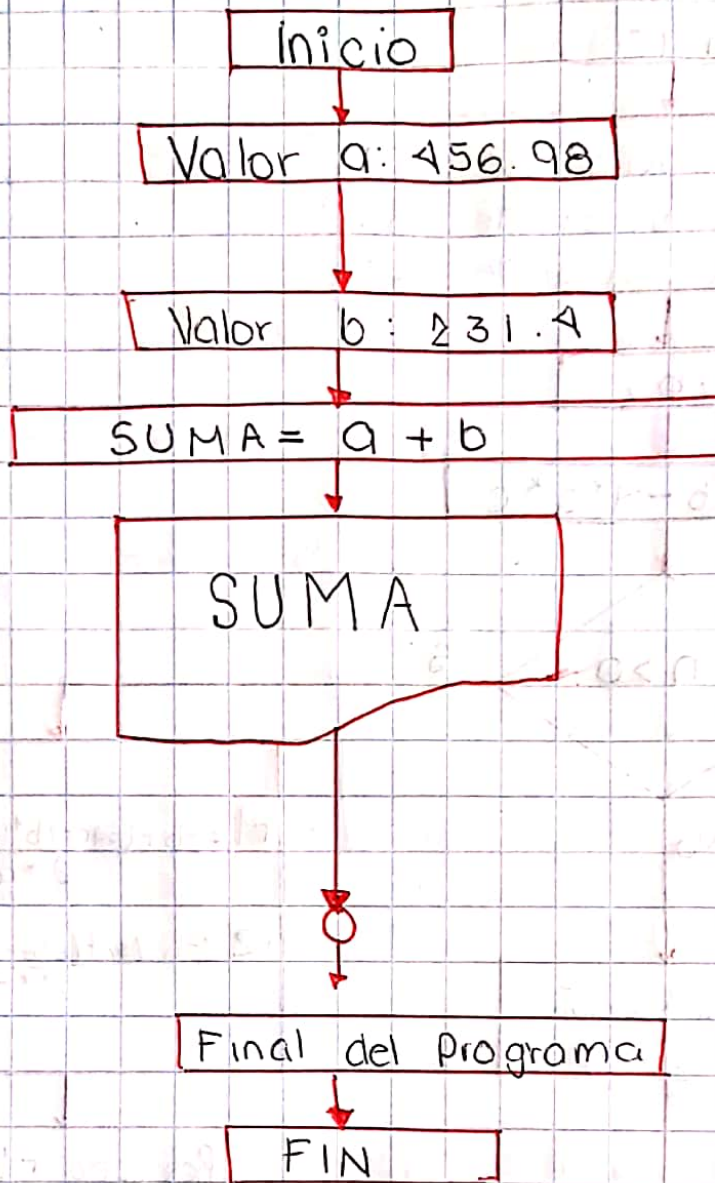 Inicio
Valor a: 456.98
Valor b: 231.4
SUMA = a + b
SUMA
Final del programa
FIN